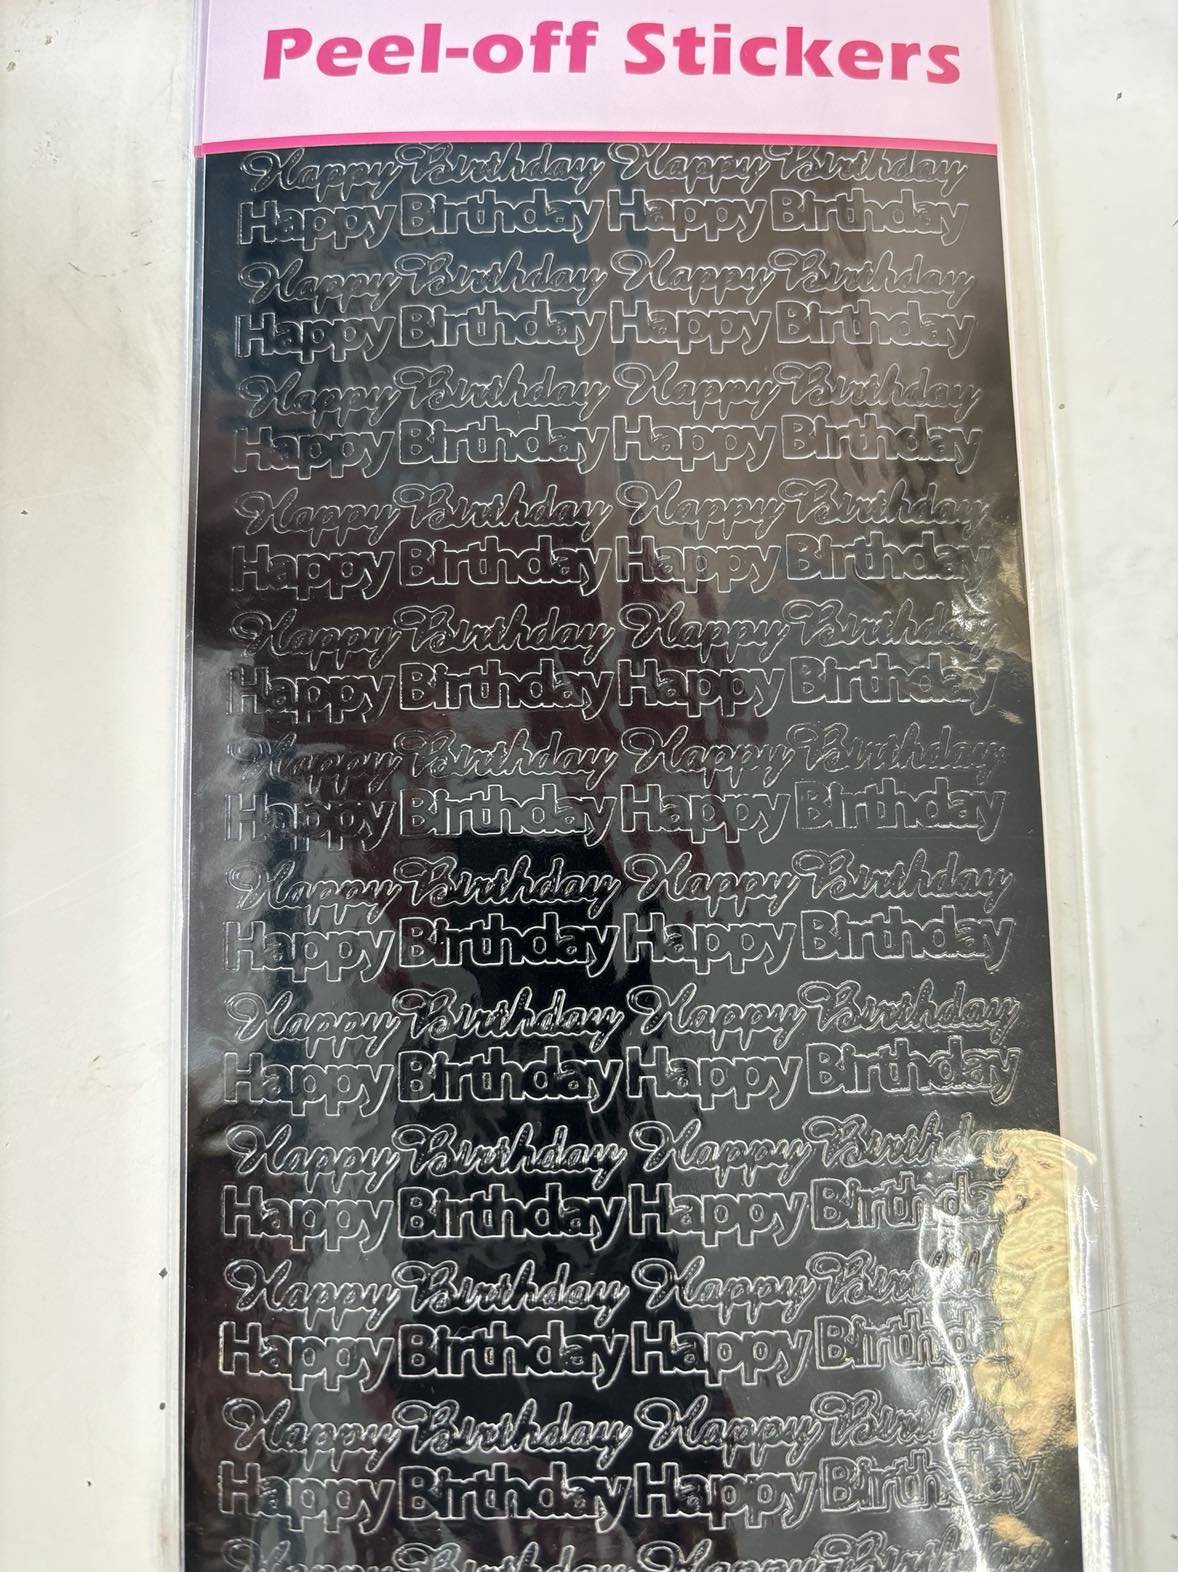 Peel-off Stickers
Happy Birthday Happy Birthday
Happy Birthday Happy Birthday
Happy Birthday Happy Birthday
Happy Birthday Happy Birthday
Happy Birthday Happy Birthday
Happy Birthday Happy Birthday
Happy Birthday Happy Birthday
Happy Birthday Happy Birthday
Happy Birthday Happy Birthday
Happy Birthday Happy Birthday
Happy Birthday Happy Birthday
Happy Birthday Happy Birthday
Happy Birthday Happy Birthday
Happy Birthday Happy Birthday
Happy Birthday Happy Birthday
Happy Birthday Happy Birthday
Happy Birthday Happy Birthday
Happy Birthday Happy Birthday
Happy Birthday Happy Birthday
Happy Birthday Happy Birthday
Happy Birthday Happy Birthday
Happy Birthday Happy Birthday
Happy Birthday Happy Birthday